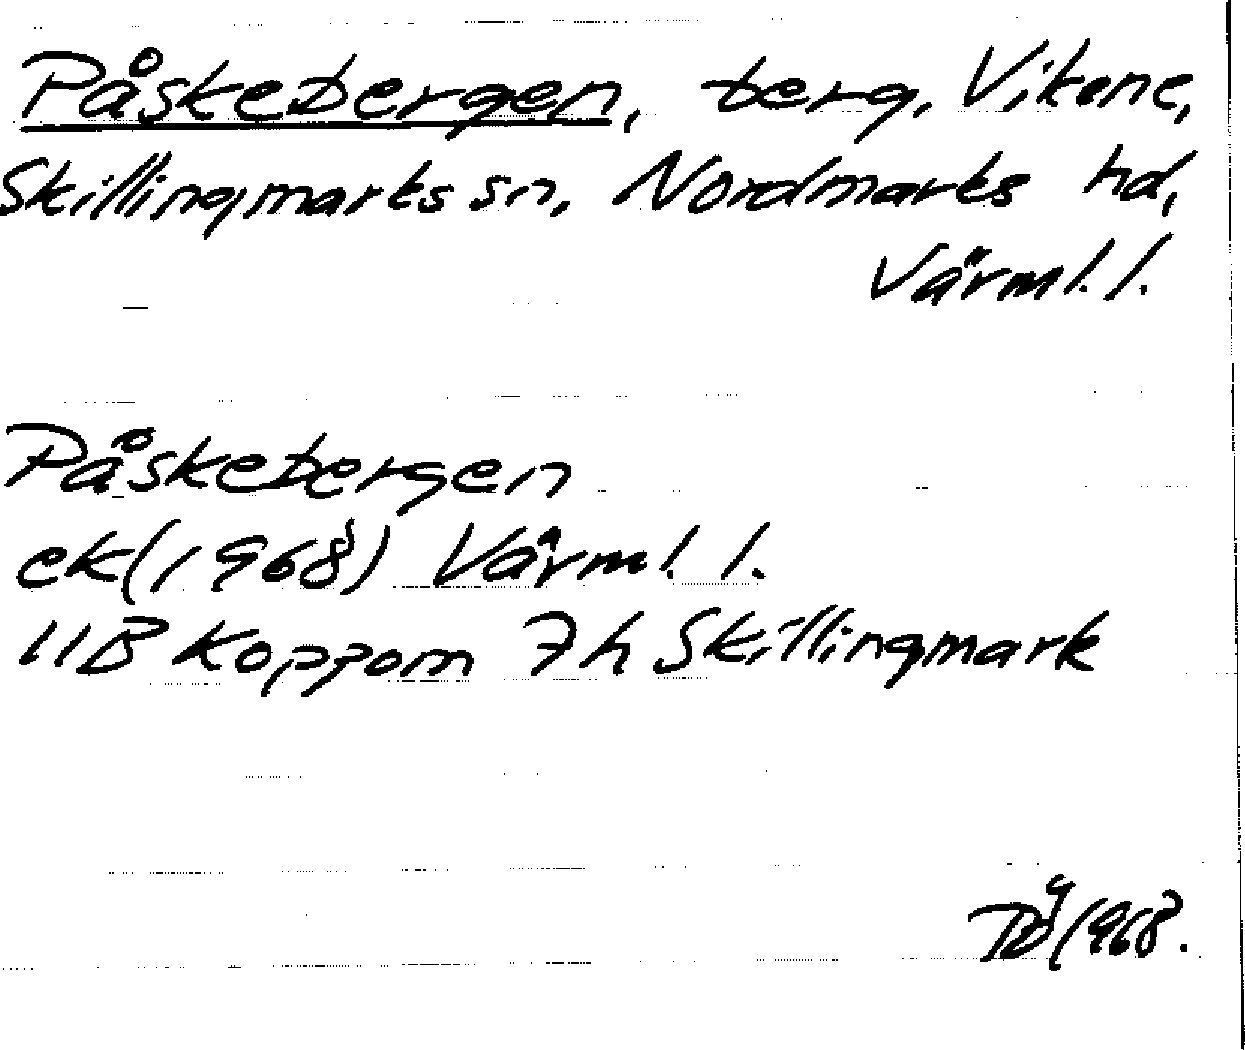 Påskebergen, berg, Vikene,
Skillingmarks sn, Nordmarks hd,
Värml. l.
Påskebergen
ek (1968) Värml. l.
11B Koppom 7h Skillingmark
1968.